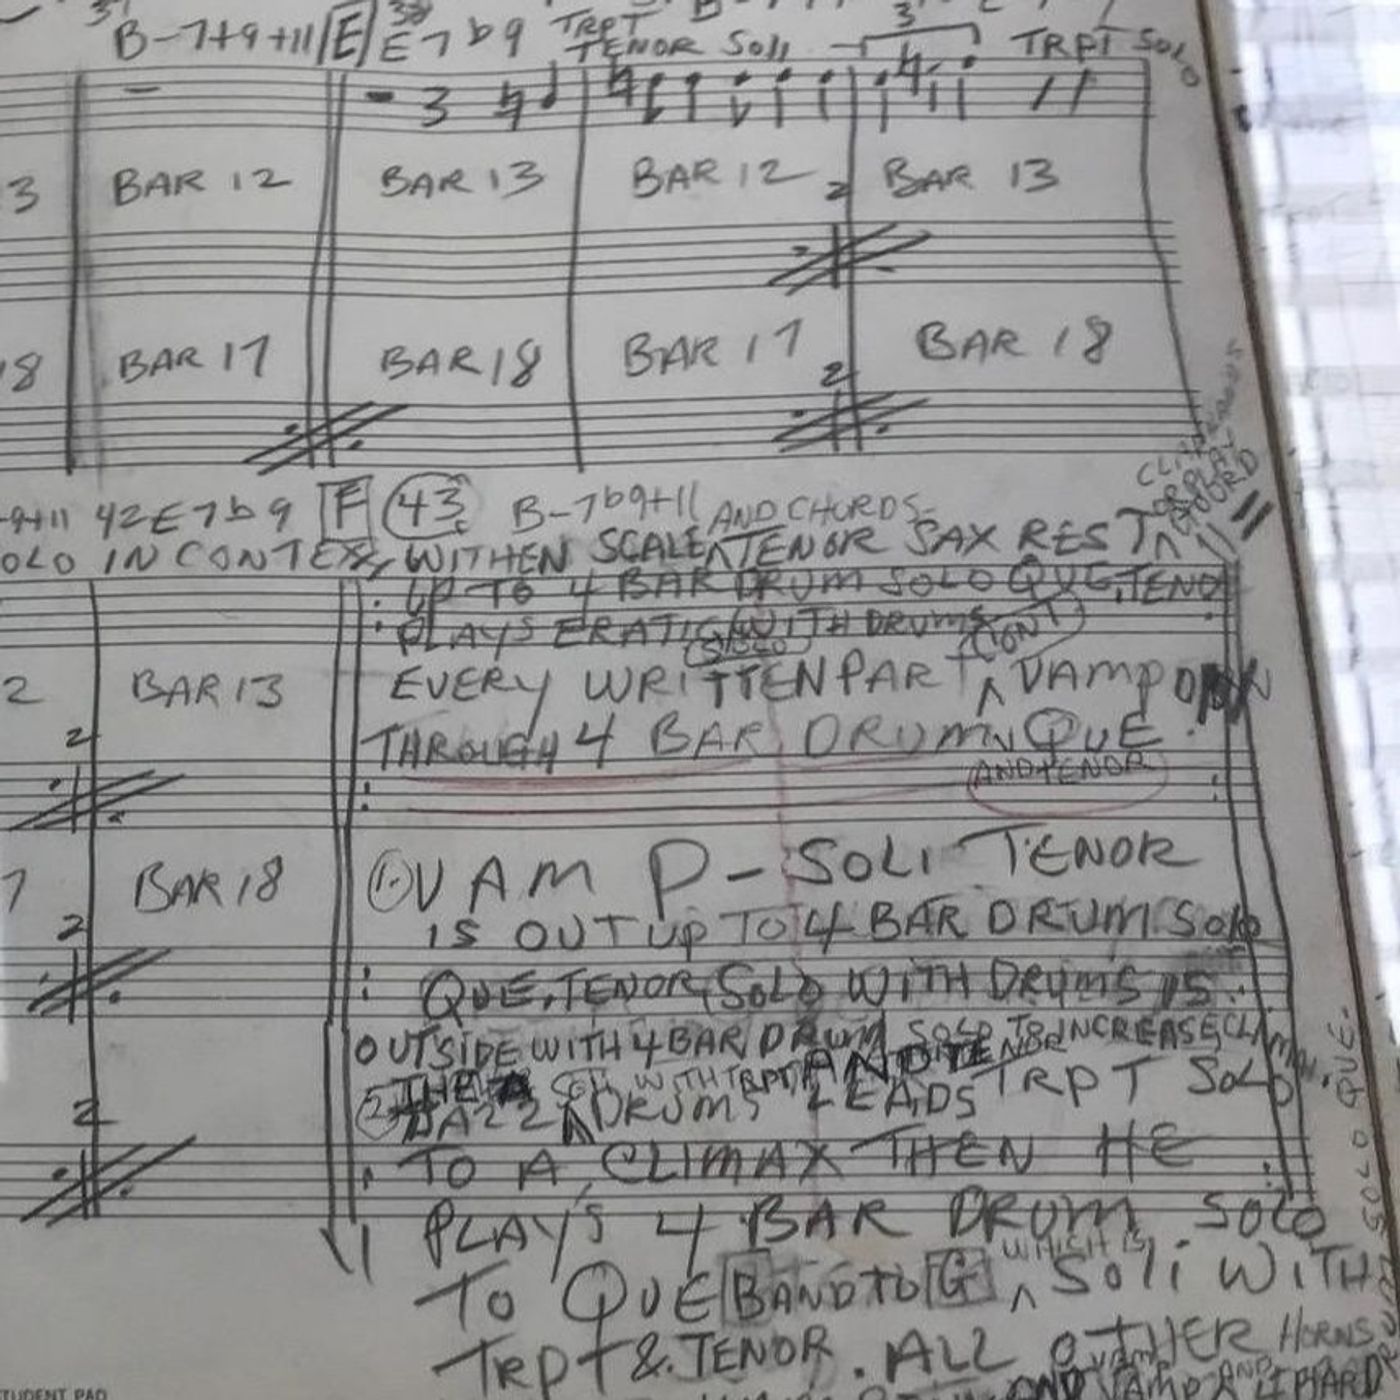 B-7+9+11 E E7b9 TRPT TENOR SOLI 3 TRPT SOLO
3 BAR 12 BAR 13 BAR 12 2 BAR 13
18 BAR 17 BAR 18 BAR 17 2 BAR 18
-9+11 42 E7b9 F 43 B-7b9+11 AND CHORDS
OLO IN CONTEX, WITHEN SCALE ^ TENOR SAX REST ^
UP TO 4 BAR DRUM SOLO QUE, TENO
PLAYS ERATIC WITH DRUMS
(SOLO) (CONT)
2 BAR 13 EVERY WRITTEN PART ^ VAMP
THROUGH 4 BAR DRUM ^ QUE.
AND TENOR
2
7 BAR 18 1. VAMP - SOLI TENOR
IS OUT UP TO 4 BAR DRUM SOLO
2
QUE, TENOR SOLO WITH DRUMS IS
OUTSIDE WITH 4 BAR DRUM SOLO TO INCREASE
THE WITH TRPT AND TENOR
2. DRUMS LEADS TRPT SOLO
2
TO A CLIMAX THEN HE
PLAY'S 4 BAR DRUM SOLO
WHICH IS
TO QUE BAND TO G ^ SOLI WITH
TRPT & TENOR. ALL OTHER HORNS
STUDENT PAD
SOLO QUE.